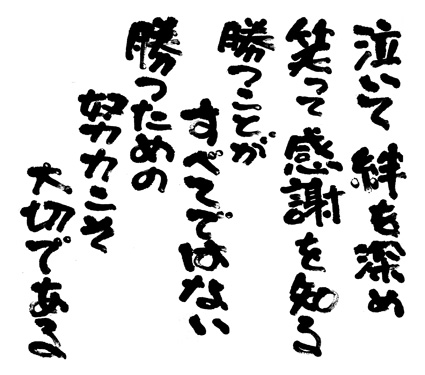 泣いて 絆を深め
笑って 感謝を知る
勝つことが
すべてではない
勝つための
努力こそ
大切である